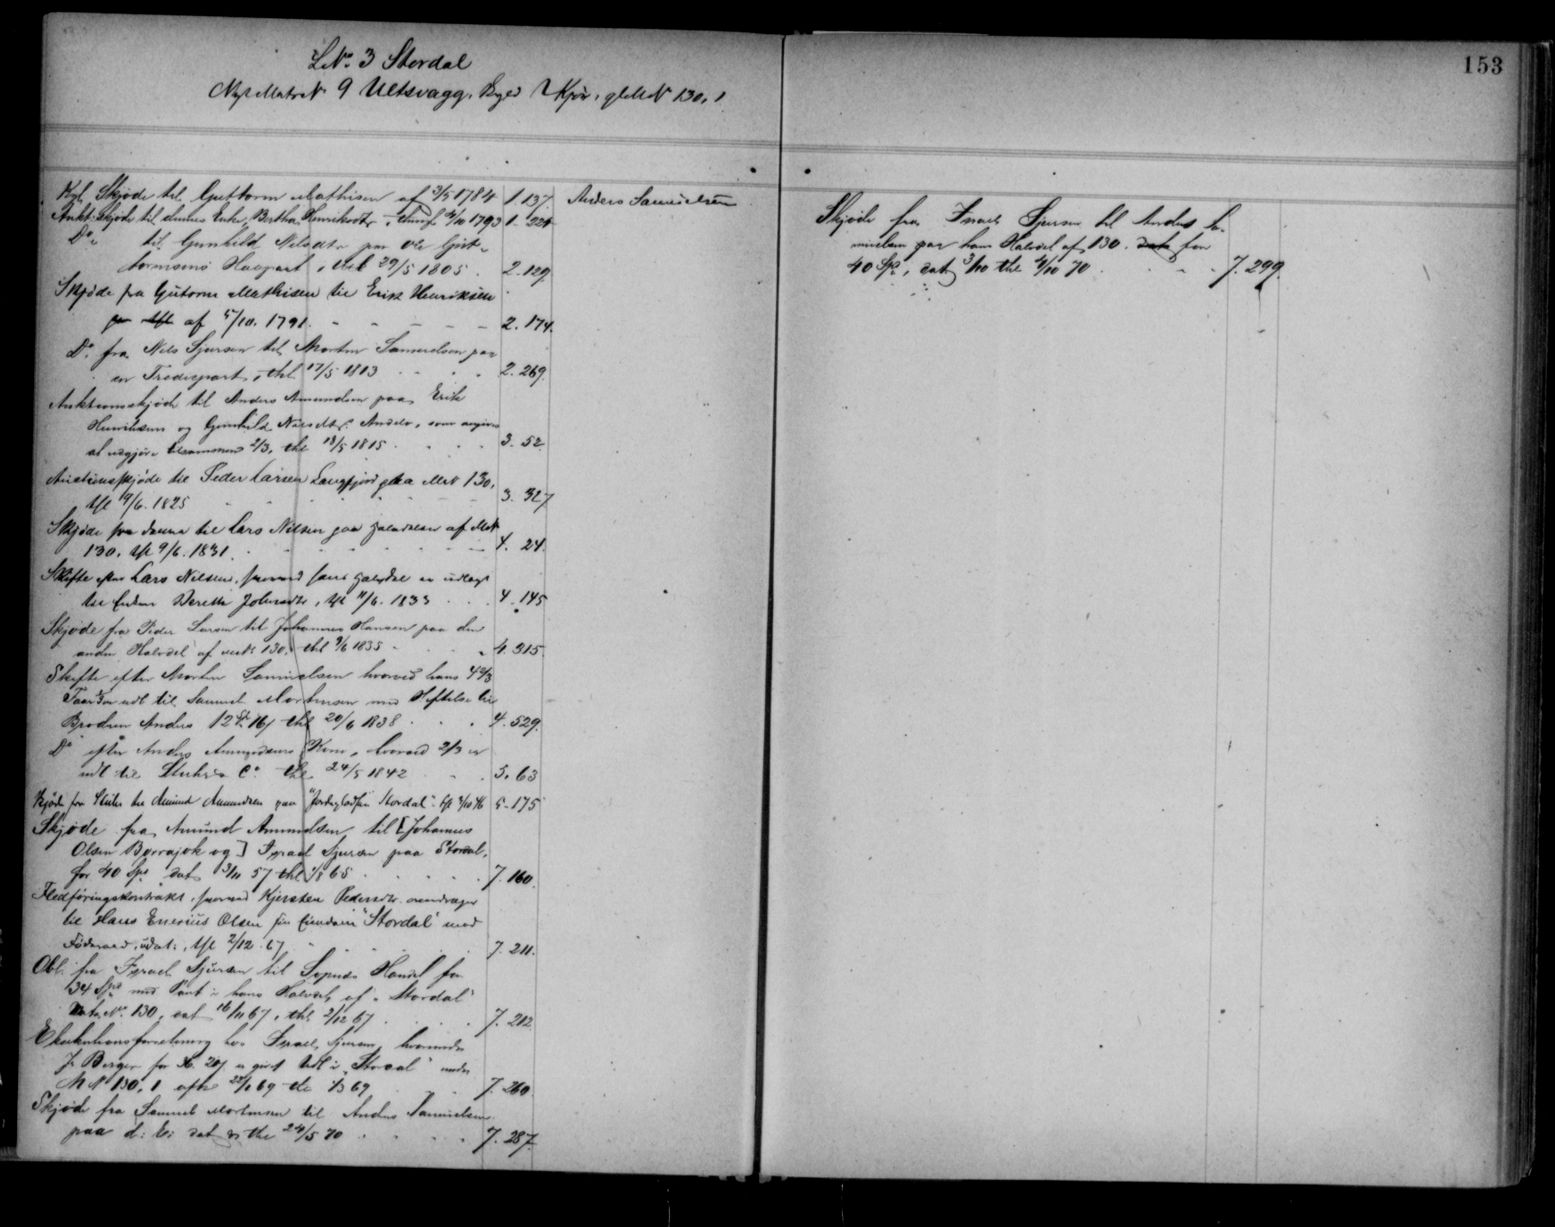 LNo 3 Stordal
Nyt MatrN 9 Ultsvagg, Byed Kjør, gl MN 130, 1
153
Kgl. Skjøde til Guttorm Mathisen af 3/5 1784 1. 137.
Anders Samuelsen
Aukt. Skjøde til Enke Bertha Henriksdtr, 1793 1. 224
Do til Gunhild Nilsdtr paa Ole Gut-
tormsens Haapart, thl 29/5 1805. 2. 129.
Skjøde fra Gutorm Mathisen til Erik Henriksen
af 5/10. 1791. 2. 174.
Do fra Nils Sjursen til Morten Samuelsen paa
en Trediepart, thl 17/5 1813 2. 269.
Auktionsskjøde til Anders Amundsen paa Erik
Henriksens og Gunhild Nilsdtrs Andele, som angives
at udgjøre tilsammen 2/3, thl 13/5 1815 3. 52.
Auctionsskjøde til Peder Larsen Langfjord paa MN 130,
thl 9/6. 1825 3. 327
Skjøde fra denne til Lars Nilsen paa Halvdelen af MN
130. thl 9/6. 1831. 4. 24.
Skifte efter Lars Nilsen, hvorved hans Halvdel er udlagt
til Enken Berethe Johnsdtr, thl 11/6. 1833 4. 145
Skjøde fra Peder Larsen til Johannes Hansen paa den
anden Halvdel af 130, thl 9/6 1835 4. 315.
Skifte efter Morten Samuelsen hvorved hans 4 2/3
er udl til Samuel Mortensen med Heftelse til
Brodren Anders 12 Sp. 16 thl 20/6 1838 4. 529.
Do efter Anders Amundsens Kone, hvorved 2/3 er
udl til Co thl 24/5 1842 5. 63
Skjøde fra til Amund Amundsen paa "Stordal" 5. 175
Skjøde fra Amund Amundsen til [Johannes
Olsen Borrajok og] Israel Sjursen paa Stordal,
for 40 Sp. dat 3/11 57 thl 1/8 65 7. 160.
Fledføringskontrakt, hvorved Kjersten Pedersdtr. overdrager
til Hans Enevius Olsen sin Eiendom "Stordal" mod
Føderaad, udat., thl 2/12. 67 7. 211.
Obl. fra Israel Sjursen til Handel for
34 Sp. med Pant i hans Halvdel af "Stordal"
Matr. No. 130, dat 16/11 67, thl 2/12 67 7. 212.
Exekutionsforretning hos Israel Sjursen, hvorunder
J. Berger for er gjort Udl i "Stordal" under
MN 130, 1 afh 69 thl 69 7. 260.
Skjøde fra Samuel Mortensen til Anders Samuelsen
paa d: E: dat thl 24/5 70 7. 287.
Skjøde fra Israel Sjursen til Anders Sa-
muelsen paa hans Halvdel af 130. for
40 Sp., dat 3/10 thl 4/10 70 7. 299.